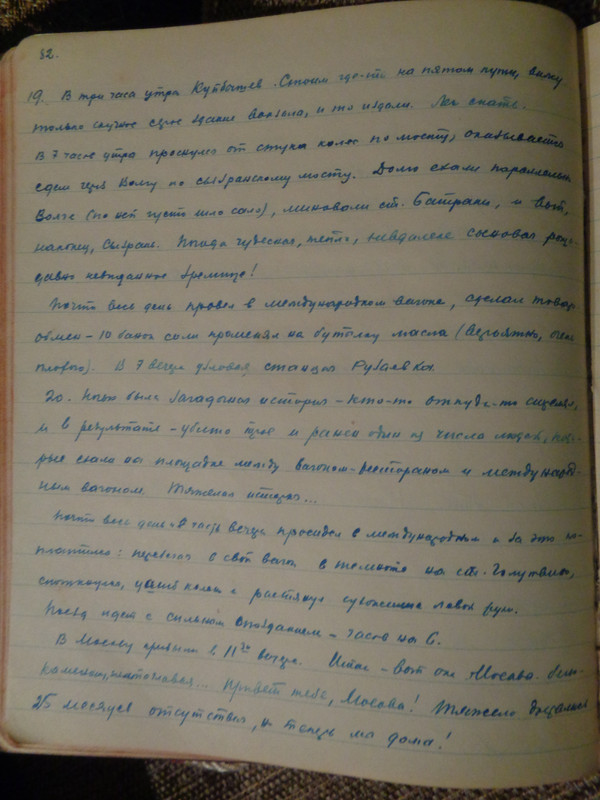 82.
19. В три часа утра Куйбышев. Стоим где-то на пятом пути, вижу
только скучное серое здание вокзала, и то издали.
В 7 часов утра проснулся от стука колес по мосту, оказывается
едем через Волгу по сызранскому мосту. Долго ехали параллельно
Волге (по ней густо шло сало), миновали ст. Батраки, и вот,
наконец, Сызрань. Погода чудесная, тепло, невдалеке сосновая роща
давно невиданное зрелище!
Почти весь день провел в международном вагоне, сделал товаро
обмен - 10 банок соли променял на бутылку масла (вероятно, очень
плохого). В 7 вечера узловая станция Рузаевка.
20. Ночью была загадочная история - кто-то откуда-то стрелял,
и в результате - убито трое и ранен один из числа людей, кото-
рые ехали на площадке между вагоном-рестораном и международ-
ным вагоном. Тяжелая история...
Почти весь день и часть вечера просидел в международном и за это по-
платился: перебегая в свой вагон в темноте на ст. Голутвин,
споткнулся, ушиб колено и растянул сухожилие левой руки.
Поезд идет с сильным опозданием - часов на 6.
В Москву прибыли в 11 30 вечера. Итак - вот она Москва бело-
каменная, ... Привет тебе, Москва! Тяжело дышалось
25 месяцев отсутствия, но теперь мы дома!